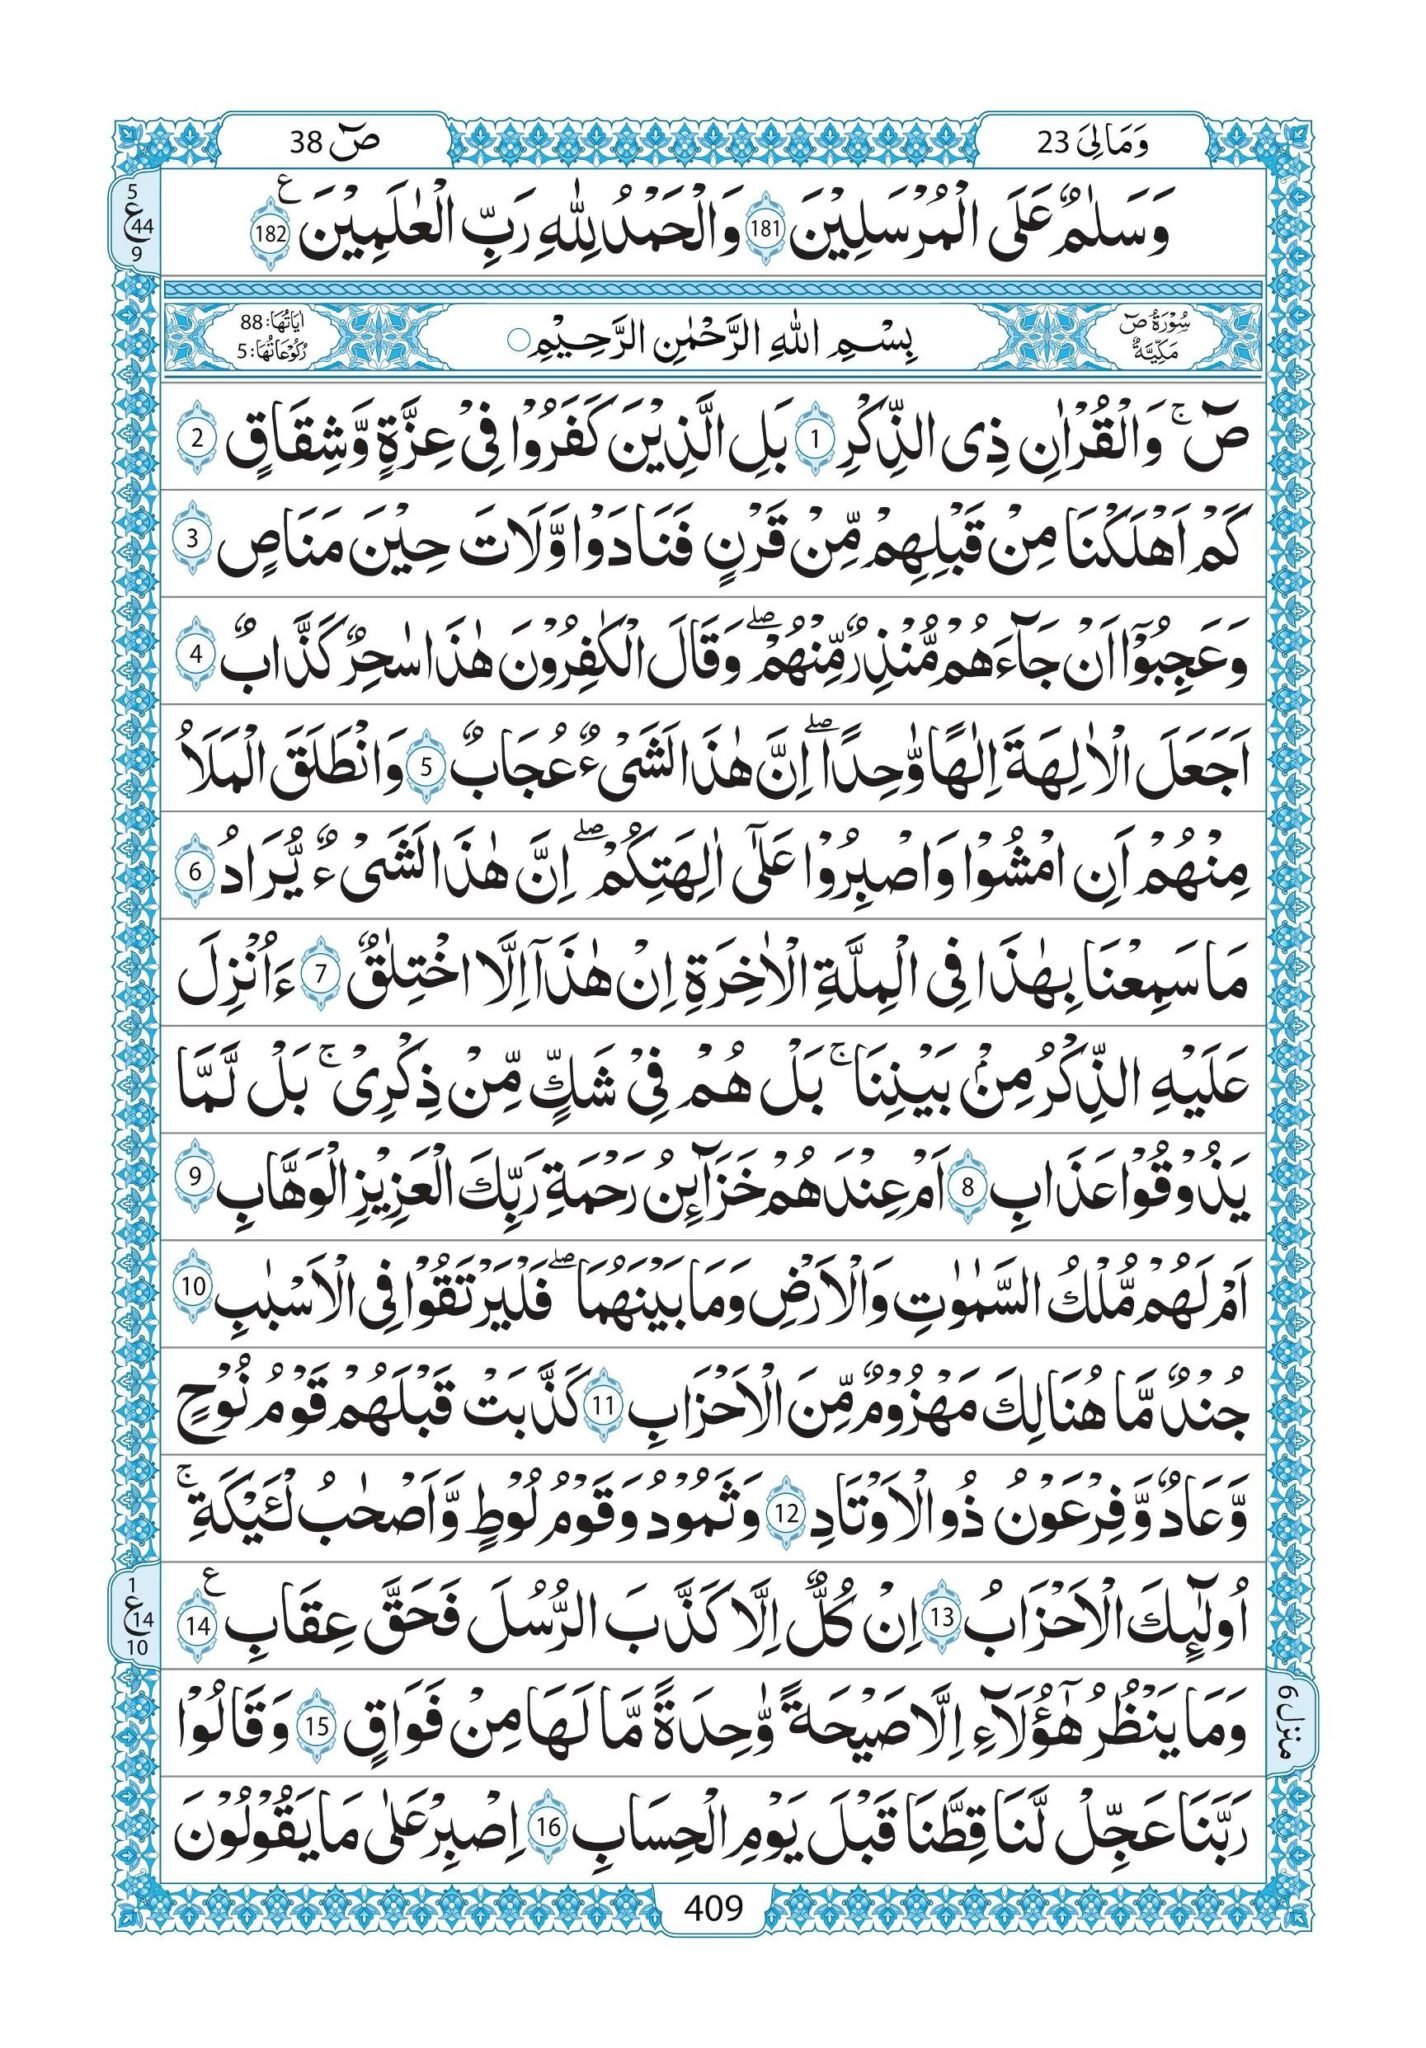 وَمَالِیَ 23
صٓ 38
وَسَلٰمٌ عَلَی الْمُرْسَلِیْنَ 181 وَالْحَمْدُ لِلّٰهِ رَبِّ الْعٰلَمِیْنَ ع 182
5 ع 44 9
سُوْرَةُ صٓ مَكِّیَّةٌ
بِسْمِ اللّٰهِ الرَّحْمٰنِ الرَّحِیْمِ
اٰیَاتُهَا: 88 رُكُوْعَاتُهَا: 5
صٓ ۚ وَالْقُرْاٰنِ ذِی الذِّكْرِ 1 بَلِ الَّذِیْنَ كَفَرُوْا فِیْ عِزَّةٍ وَّشِقَاقٍ 2
كَمْ اَهْلَكْنَا مِنْ قَبْلِهِمْ مِّنْ قَرْنٍ فَنَادَوْا وَّلَاتَ حِیْنَ مَنَاصٍ 3
وَعَجِبُوْۤا اَنْ جَآءَهُمْ مُّنْذِرٌ مِّنْهُمْ ۖ وَقَالَ الْكٰفِرُوْنَ هٰذَا سٰحِرٌ كَذَّابٌ 4
اَجَعَلَ الْاٰلِهَةَ اِلٰهًا وَّاحِدًا ۖ اِنَّ هٰذَا لَشَیْءٌ عُجَابٌ 5 وَانْطَلَقَ الْمَلَاُ
مِنْهُمْ اَنِ امْشُوْا وَاصْبِرُوْا عَلٰۤی اٰلِهَتِكُمْ ۖ اِنَّ هٰذَا لَشَیْءٌ یُّرَادُ 6
مَا سَمِعْنَا بِهٰذَا فِی الْمِلَّةِ الْاٰخِرَةِ اِنْ هٰذَاۤ اِلَّا اخْتِلٰقٌ 7 ءَاُنْزِلَ
عَلَیْهِ الذِّكْرُ مِنْۢ بَیْنِنَا ۚ بَلْ هُمْ فِیْ شَكٍّ مِّنْ ذِكْرِیْ ۚ بَلْ لَّمَّا
یَذُوْقُوْا عَذَابِ 8 اَمْ عِنْدَهُمْ خَزَآىِٕنُ رَحْمَةِ رَبِّكَ الْعَزِیْزِ الْوَهَّابِ 9
اَمْ لَهُمْ مُّلْكُ السَّمٰوٰتِ وَالْاَرْضِ وَمَا بَیْنَهُمَا ۖ فَلْیَرْتَقُوْا فِی الْاَسْبٰبِ 10
جُنْدٌ مَّا هُنَالِكَ مَهْزُوْمٌ مِّنَ الْاَحْزَابِ 11 كَذَّبَتْ قَبْلَهُمْ قَوْمُ نُوْحٍ
وَّعَادٌ وَّفِرْعَوْنُ ذُو الْاَوْتَادِ 12 وَثَمُوْدُ وَقَوْمُ لُوْطٍ وَّاَصْحٰبُ لْـَٔیْكَةِ ۚ
اُولٰٓىِٕكَ الْاَحْزَابُ 13 اِنْ كُلٌّ اِلَّا كَذَّبَ الرُّسُلَ فَحَقَّ عِقَابِ ع 14
1 ع 14 10
وَمَا یَنْظُرُ هٰۤؤُلَآءِ اِلَّا صَیْحَةً وَّاحِدَةً مَّا لَهَا مِنْ فَوَاقٍ 15 وَقَالُوْا
منزل 6
رَبَّنَا عَجِّلْ لَّنَا قِطَّنَا قَبْلَ یَوْمِ الْحِسَابِ 16 اِصْبِرْ عَلٰی مَا یَقُوْلُوْنَ
409